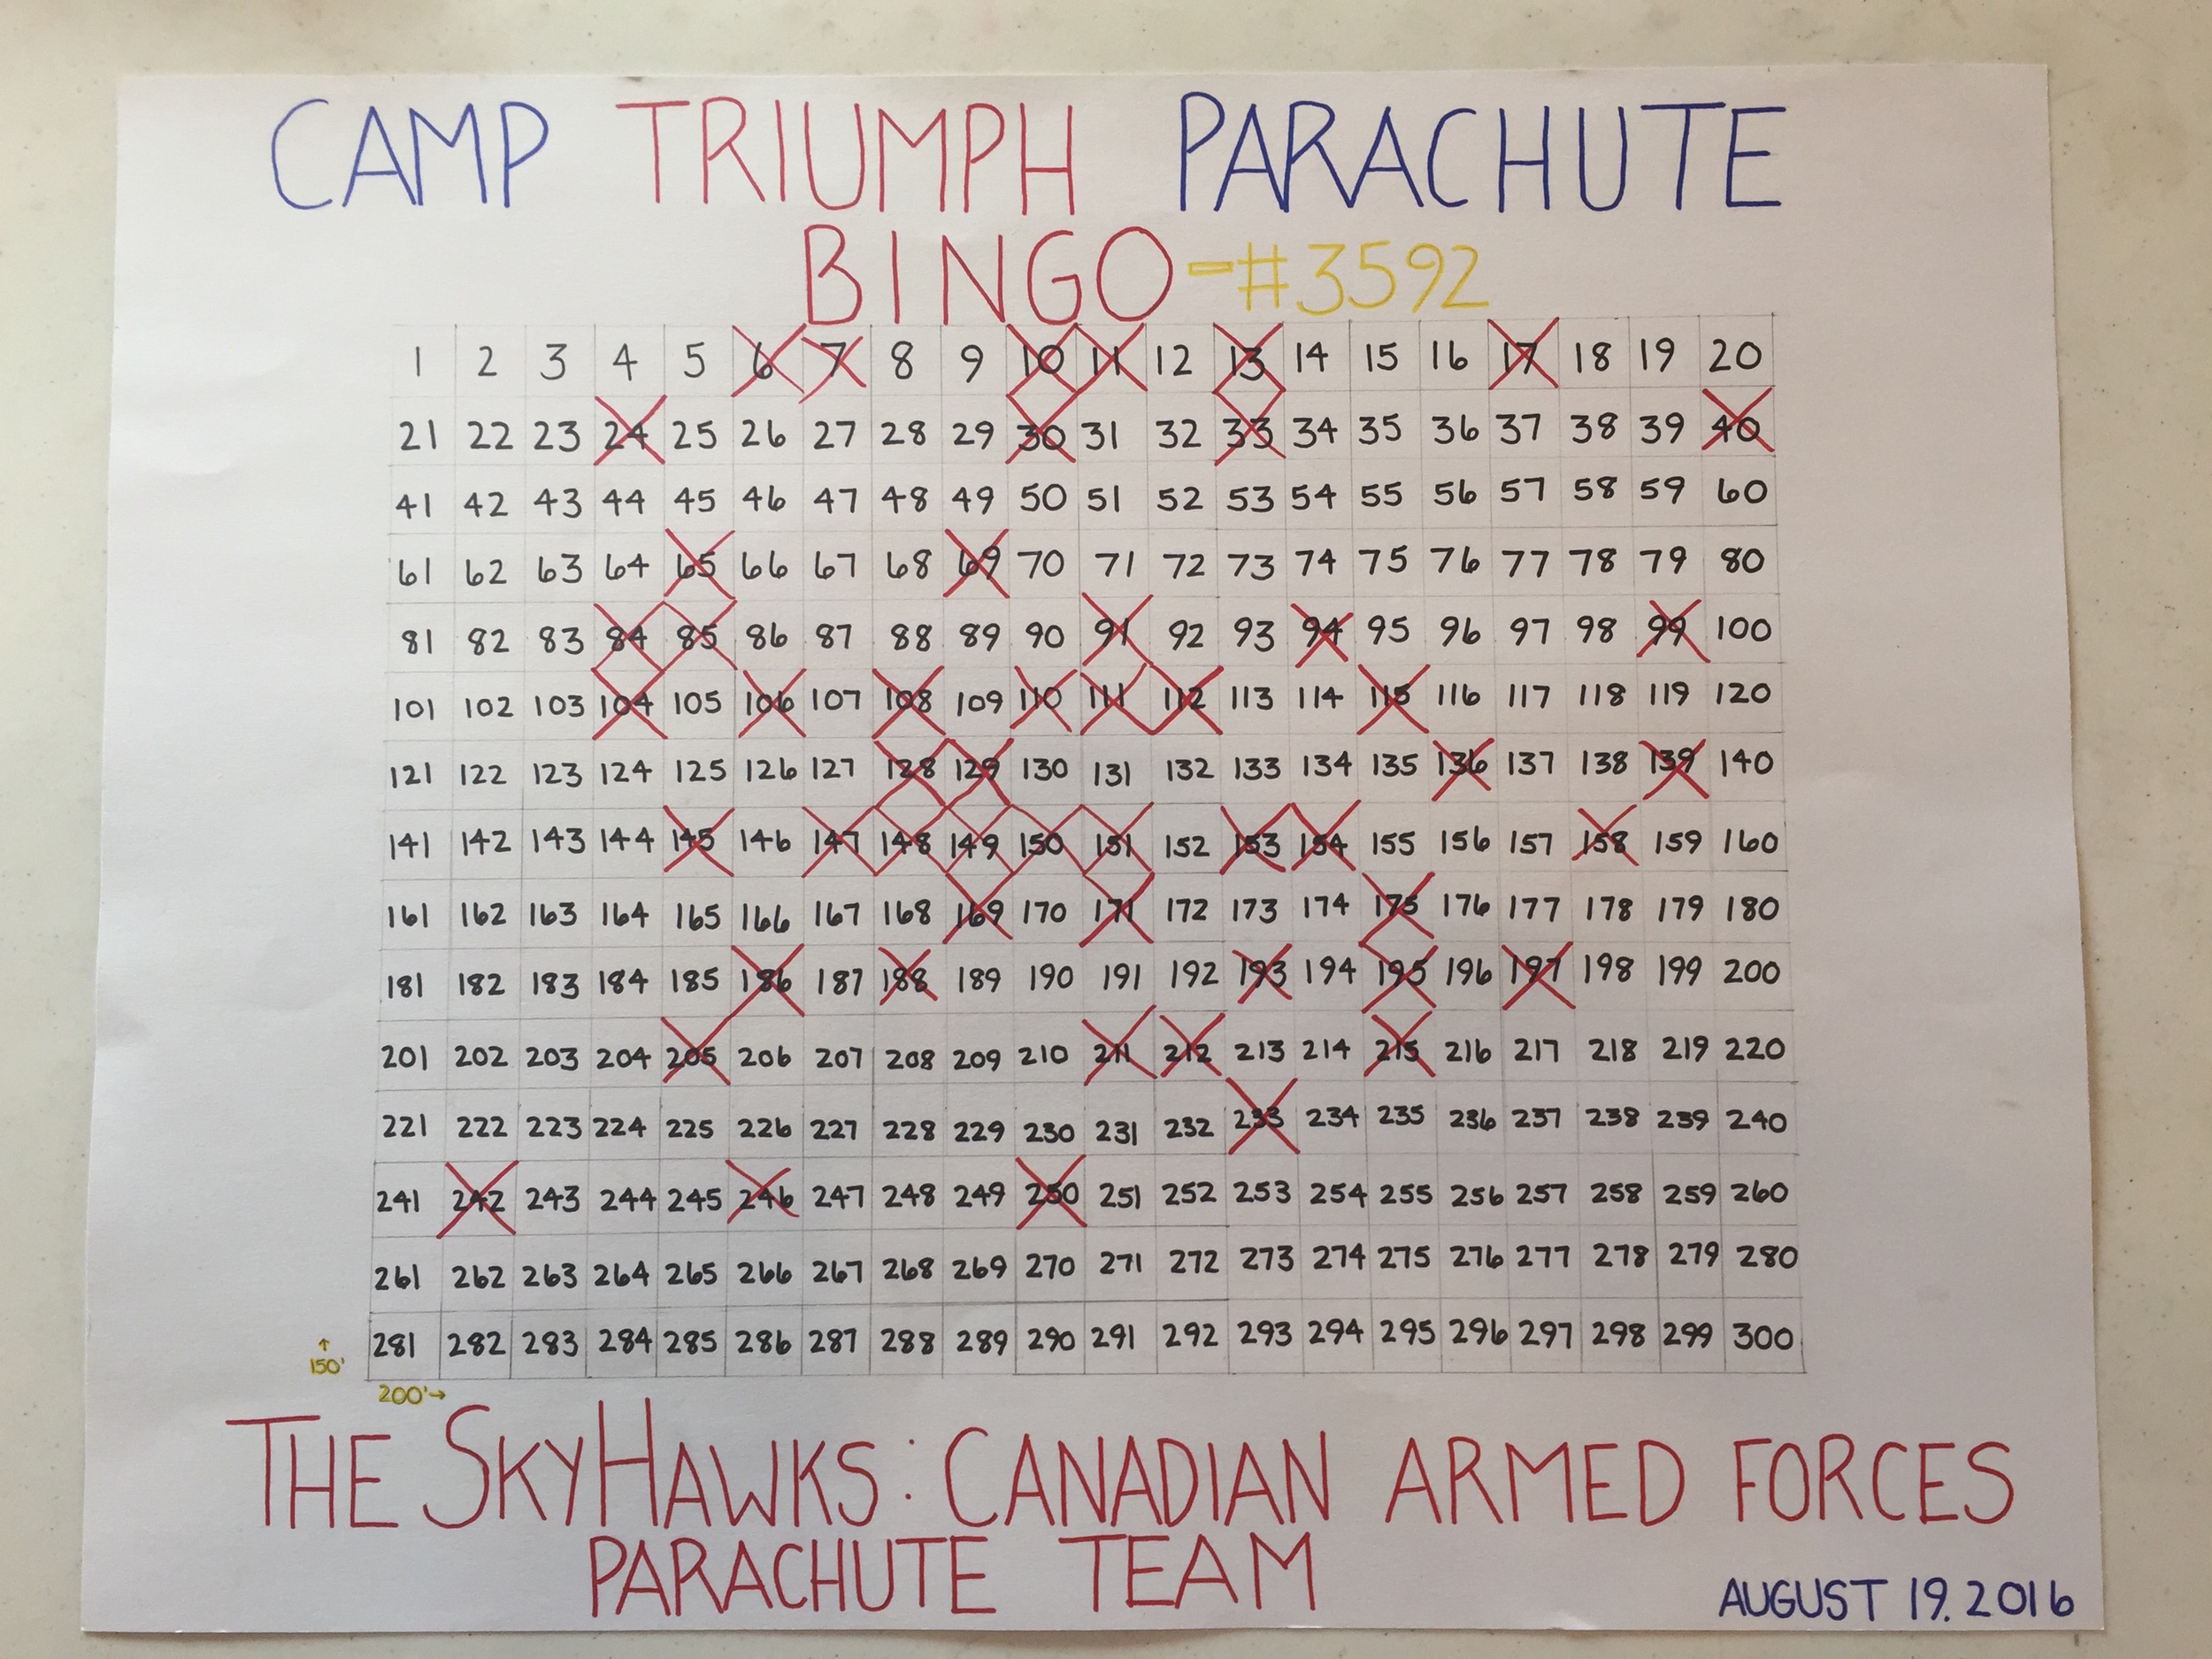 CAMP TRIUMPH PARACHUTE
BINGO-#3592
1 2 3 4 5 6 7 8 9 10 11 12 13 14 15 16 17 18 19 20
21 22 23 24 25 26 27 28 29 30 31 32 33 34 35 36 37 38 39 40
41 42 43 44 45 46 47 48 49 50 51 52 53 54 55 56 57 58 59 60
61 62 63 64 65 66 67 68 69 70 71 72 73 74 75 76 77 78 79 80
81 82 83 84 85 86 87 88 89 90 91 92 93 94 95 96 97 98 99 100
101 102 103 104 105 106 107 108 109 110 111 112 113 114 115 116 117 118 119 120
121 122 123 124 125 126 127 128 129 130 131 132 133 134 135 136 137 138 139 140
141 142 143 144 145 146 147 148 149 150 151 152 153 154 155 156 157 158 159 160
161 162 163 164 165 166 167 168 169 170 171 172 173 174 175 176 177 178 179 180
181 182 183 184 185 186 187 188 189 190 191 192 193 194 195 196 197 198 199 200
201 202 203 204 205 206 207 208 209 210 211 212 213 214 215 216 217 218 219 220
221 222 223 224 225 226 227 228 229 230 231 232 233 234 235 236 237 238 239 240
241 242 243 244 245 246 247 248 249 250 251 252 253 254 255 256 257 258 259 260
261 262 263 264 265 266 267 268 269 270 271 272 273 274 275 276 277 278 279 280
281 282 283 284 285 286 287 288 289 290 291 292 293 294 295 296 297 298 299 300
↑
150'
200'→
THE SKYHAWKS: CANADIAN ARMED FORCES
PARACHUTE TEAM
AUGUST 19. 2016